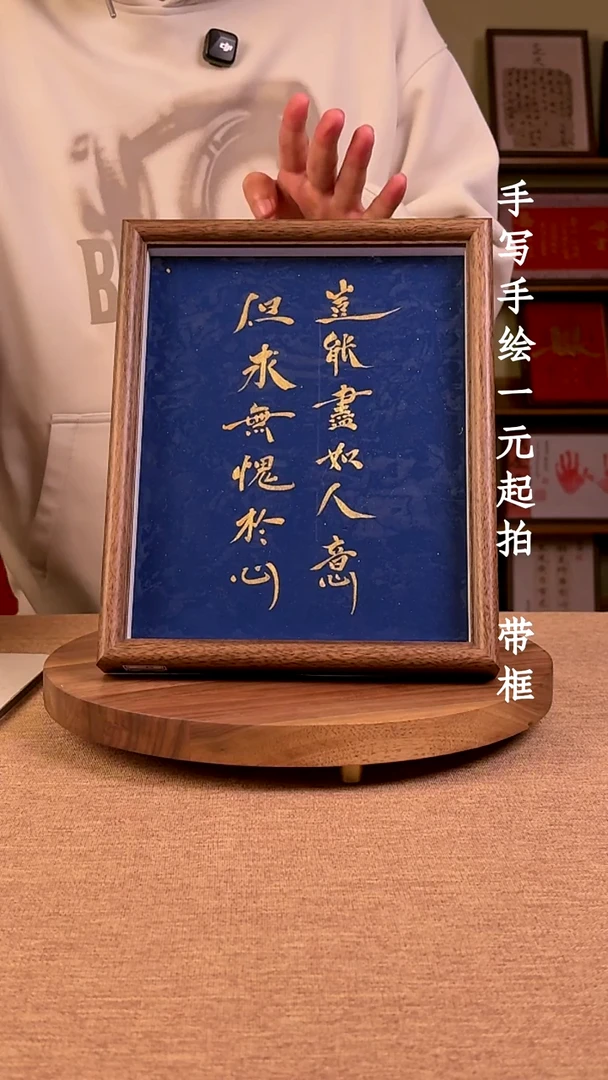 豈能盡如人意
但求無愧於心
手写手绘一元起拍 带框